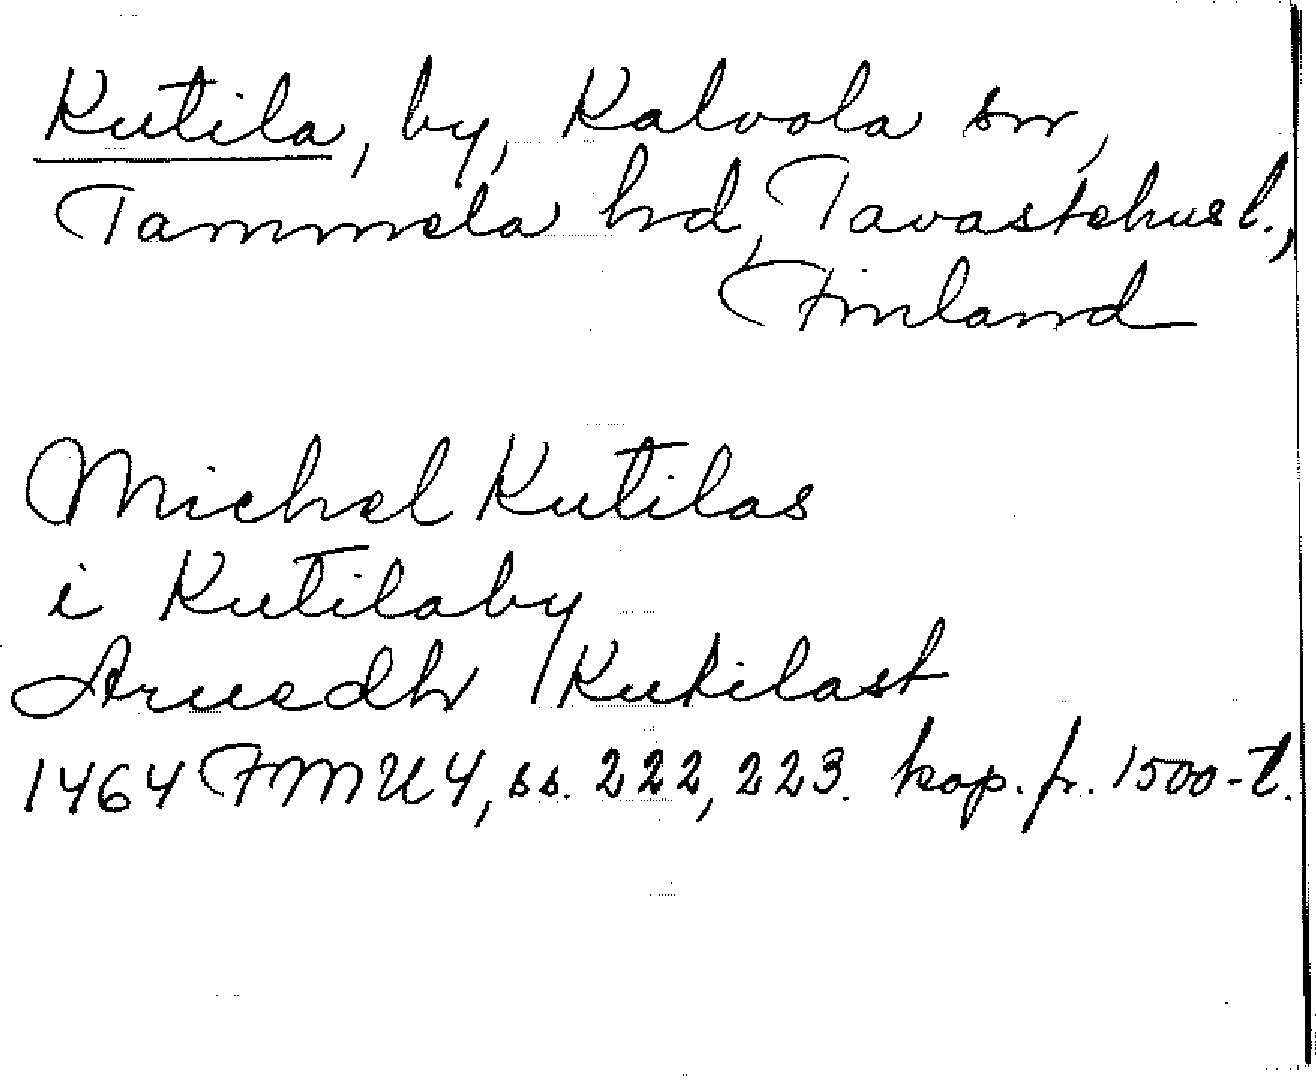 Kutila, by, Kalvola sn,
Tammela hd, Tavastehus l.,
Finland
Michel Kutilas
i Kutilaby
Anuedh Kukilast
1464 FMU 4, ss. 222, 223. kop. fr. 1500-t.